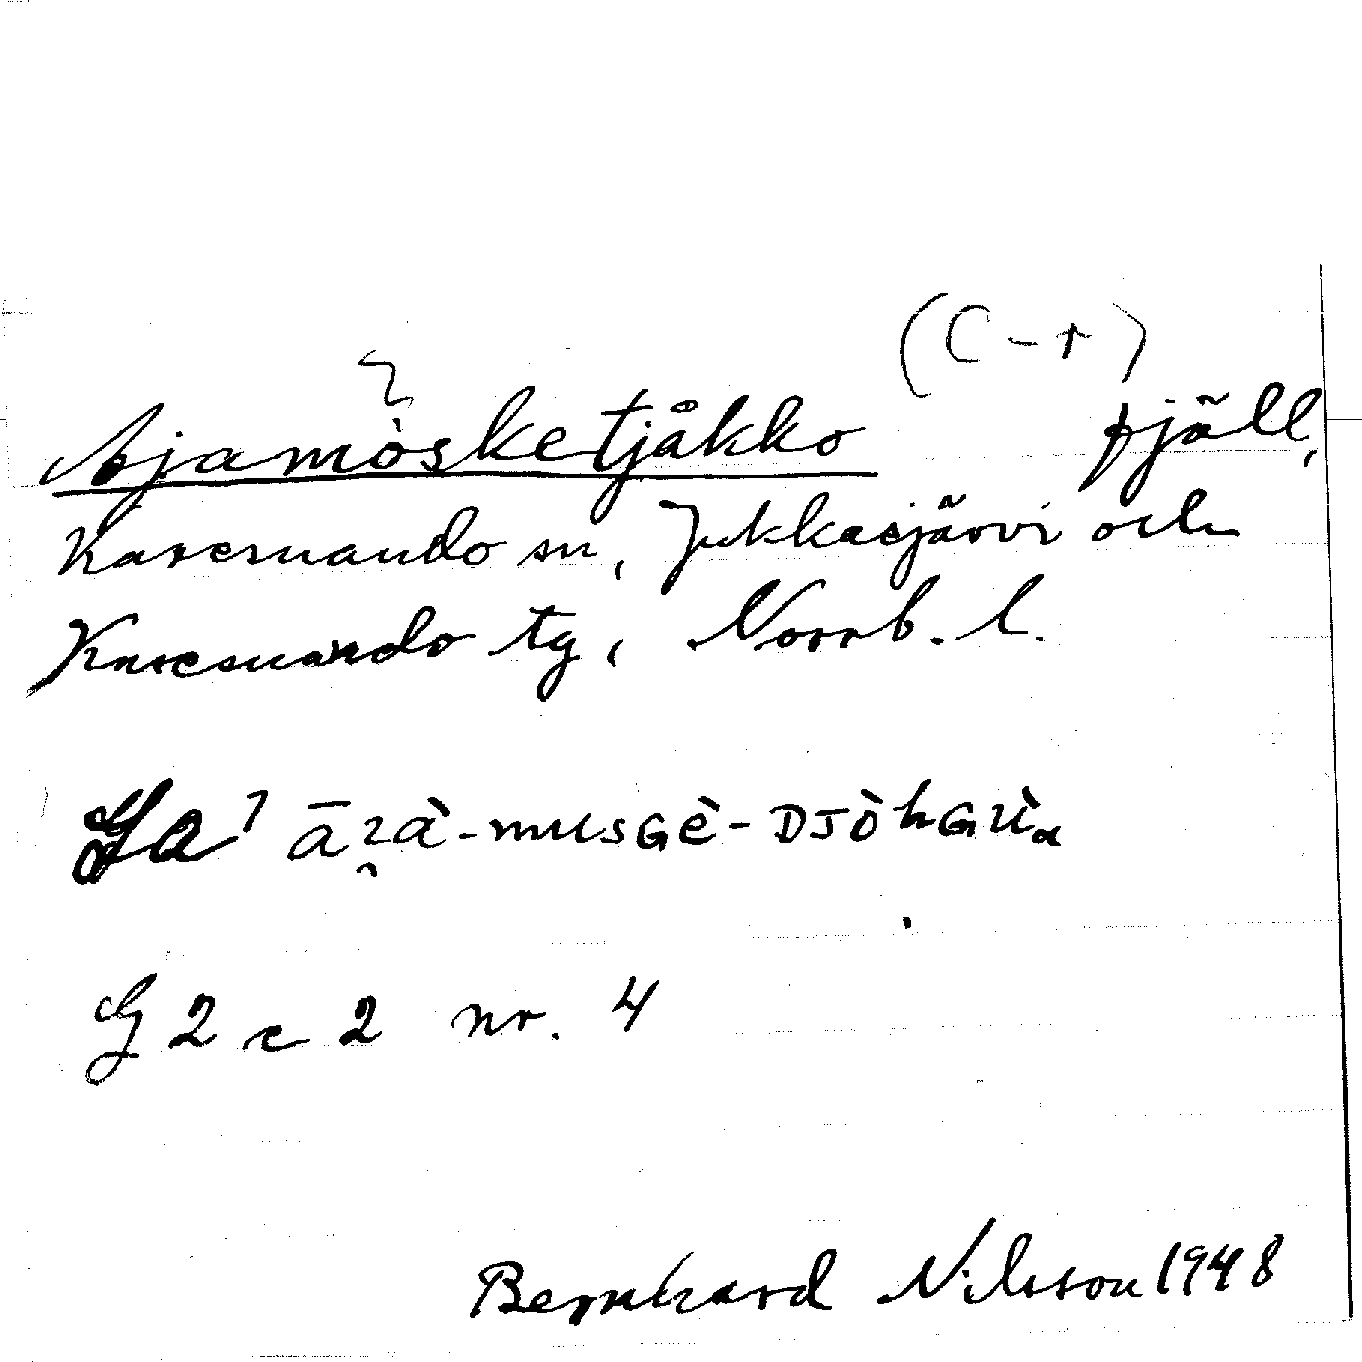 (C-r)
Ajamòsketjåkko fjäll,
Karesuando sn, Jukkasjärvi och
Karesuando tg, Norrb. l.
āʒà-musGè-DJòhGù
G 2 c 2 nr. 4
Bernhard Nilsson 1948